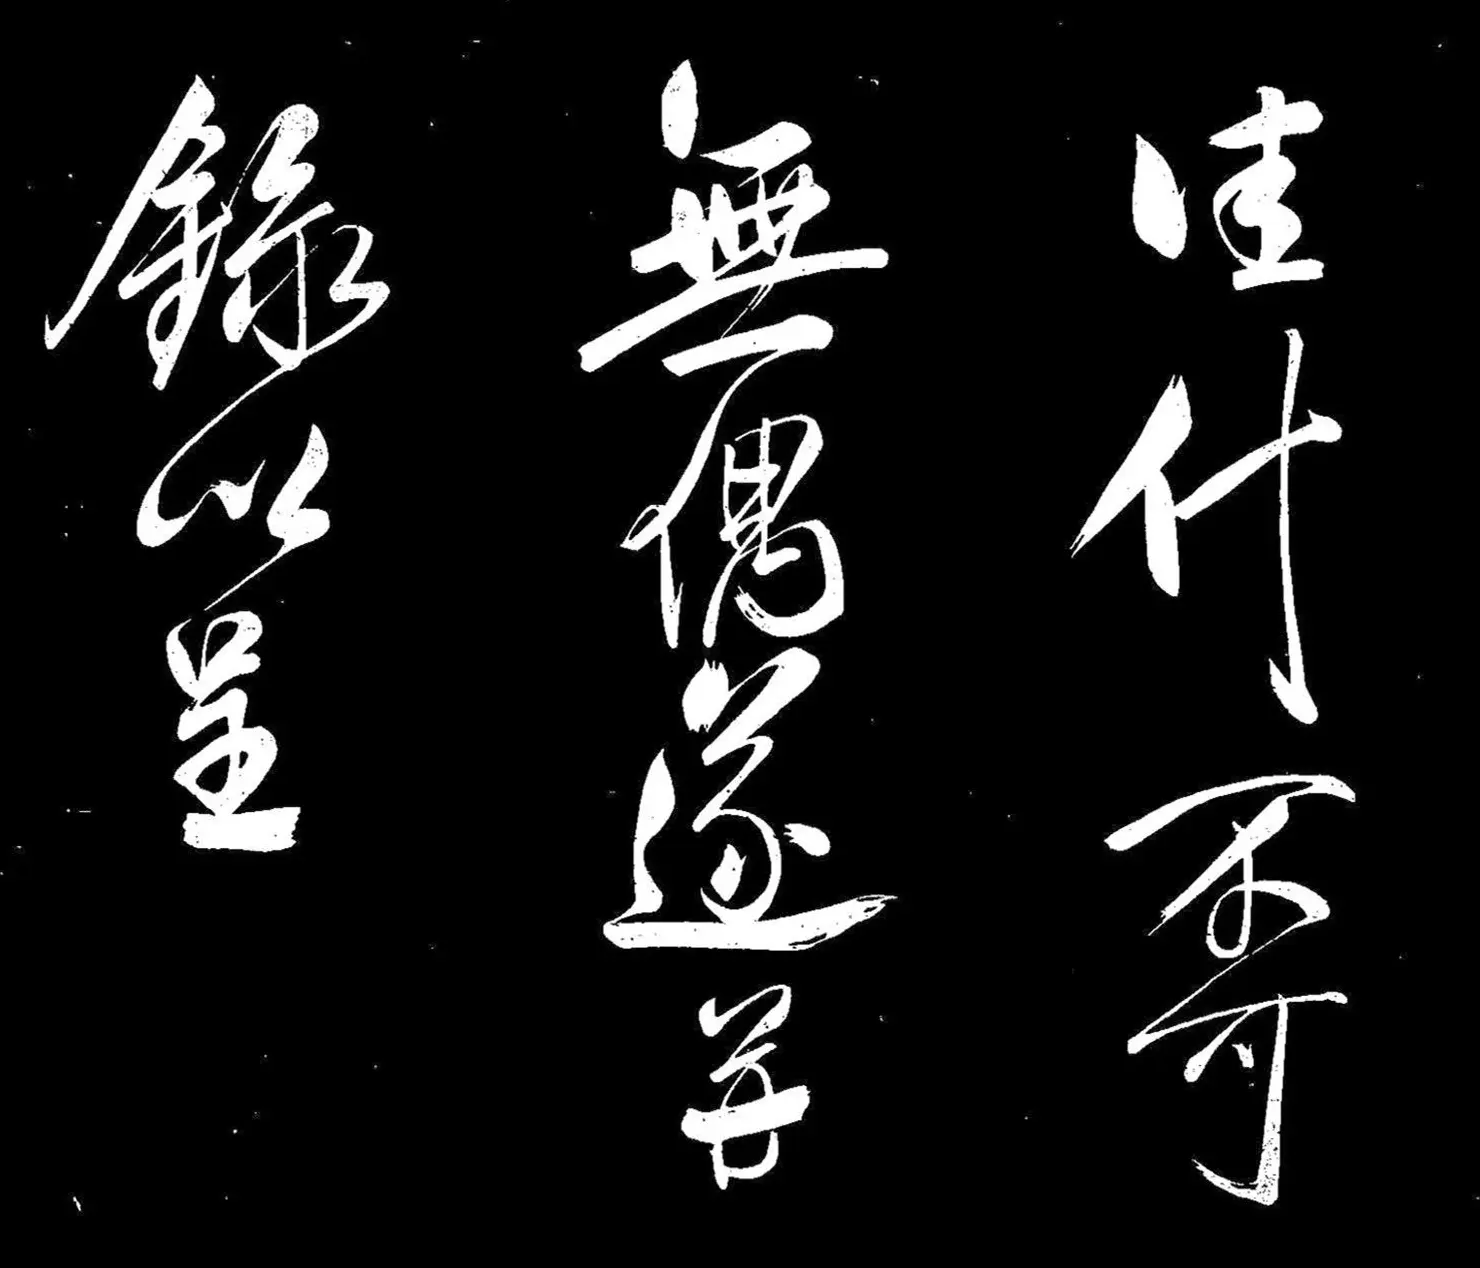 佳什不可
無偶遂并
錄以呈